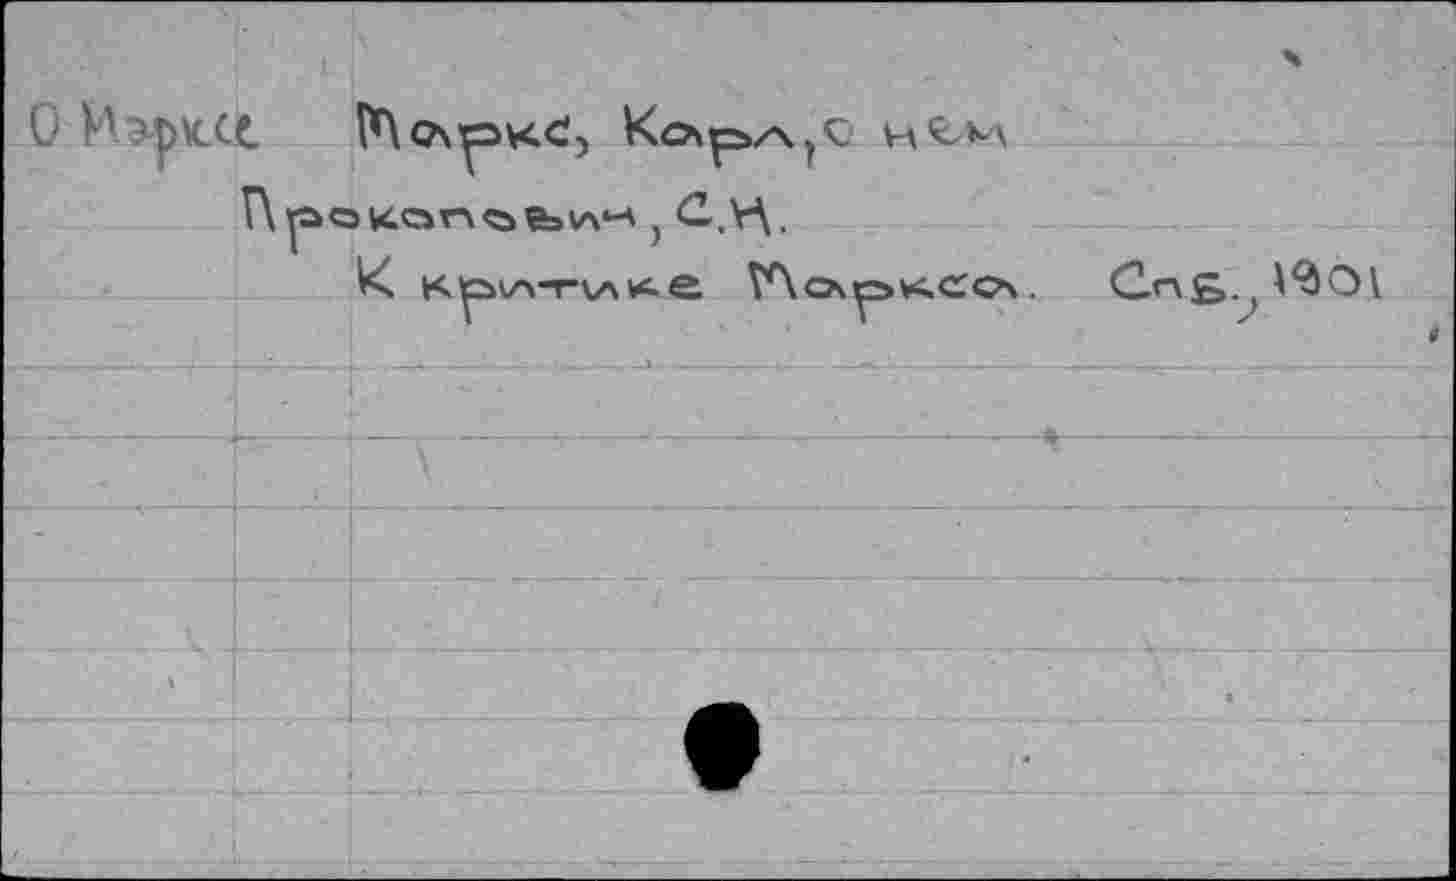 О Марксе Маркс, Карл, о нем
Прокопович, С.Н.
К критике Маркса. Спб., 1901